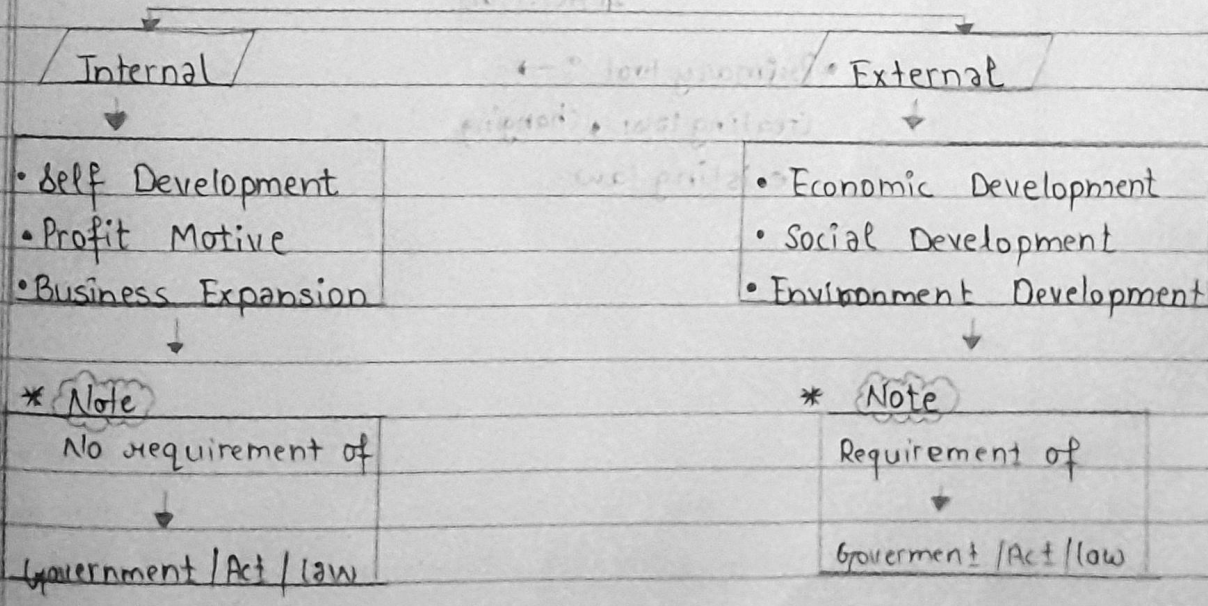 Internal
• Self Development
• Profit Motive
• Business Expansion
* Note
No requirement of
Government / Act / law
• External
• Economic Development
• Social Development
• Environment Development
* Note
Requirement of
Goverment / Act / law